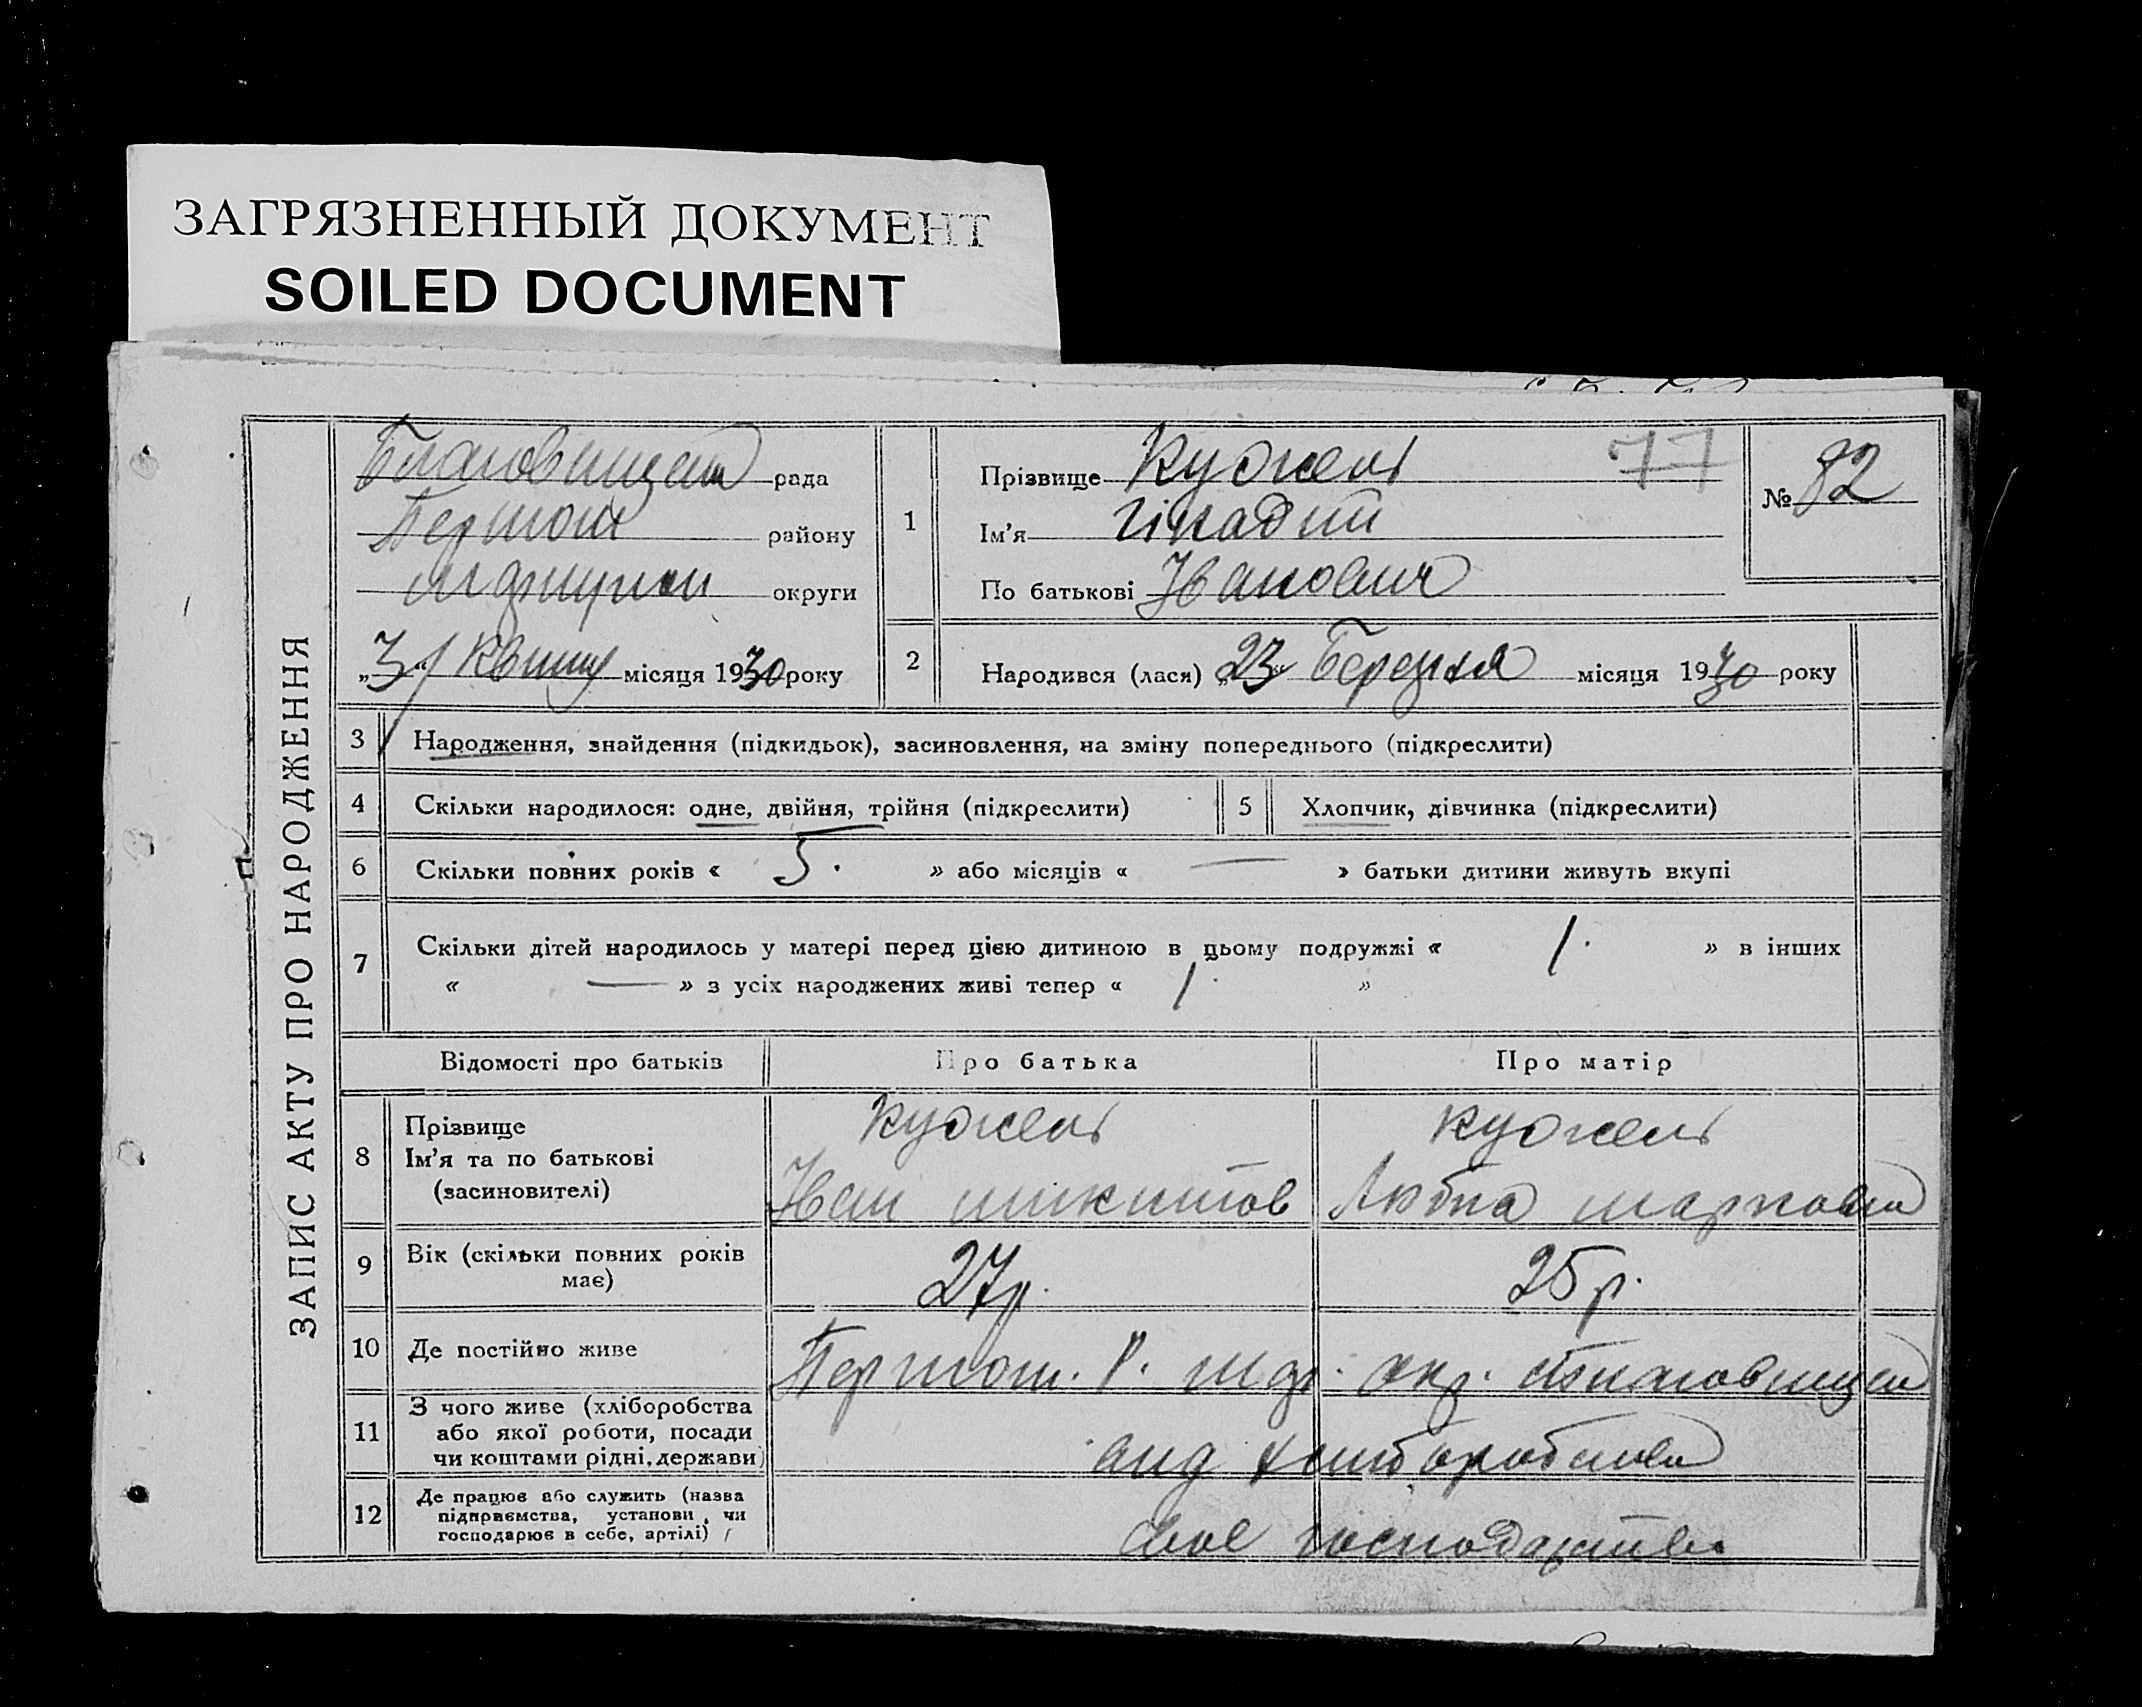 ЗАГРЯЗНЕННЫЙ ДОКУМЕНТ
SOILED DOCUMENT
ЗАПИС АКТУ ПРО НАРОДЖЕННЯ
Благовищен рада
району
округи
„3“ місяця 1930 року
1
Прізвище Кужель 77
Ім'я Гінадий
По батькові Іванович
№ 82
2
Народився (лася) „23“ Березня місяця 1930 року
3 Народження, знайдення (підкидьок), засиновлення, на зміну попереднього (підкреслити)
4 Скільки народилося: одне, двійня, трійня (підкреслити) 5 Хлопчик, дівчинка (підкреслити)
6 Скільки повних років « 5. » або місяців « — » батьки дитини живуть вкупі
7 Скільки дітей народилось у матері перед цією дитиною в цьому подружжі « 1. » в інших
« — » з усіх народжених живі тепер « 1. »
Відомості про батьків Про батька Про матір
8 Прізвище
Ім'я та по батькові
(засиновителі)
Кужель Кужель
Іван Микитов Марковна
9 Вік (скільки повних років
має)
27 р. 25 р.
10 Де постійно живе
Першом. Р. окр. Благовищен
11 З чого живе (хліборобства
або якої роботи, посади
чи коштами рідні, держави)
від хліборобства
12 Де працює або служить (назва
підприємства, установи, чи
господарює в себе, артілі)
своє господарство